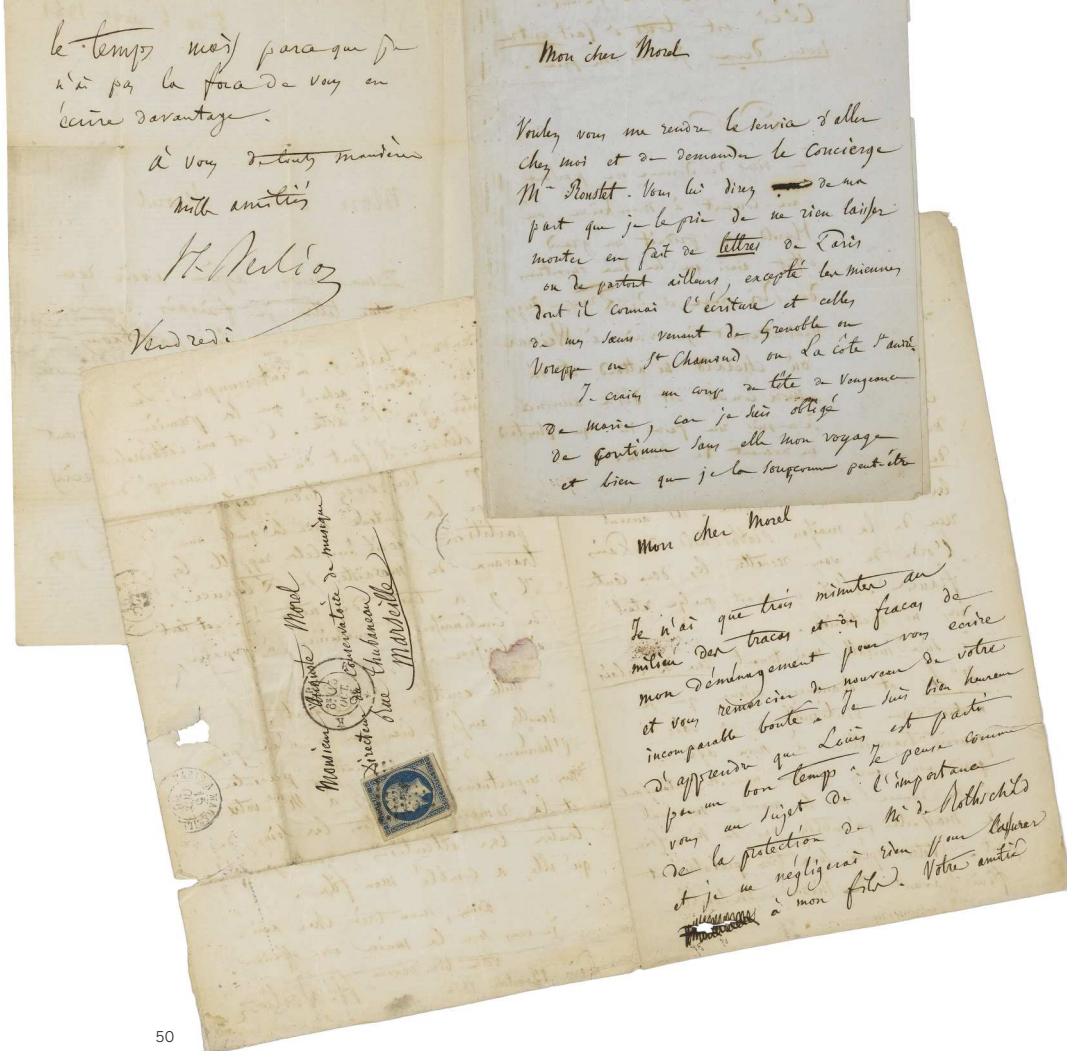 le temps mais parceque je
n'ai pas la force de vous en
écrire davantage.
à vous de toute manière
mille amitiés
H. Berlioz
Vendredi
Mon cher Morel
Voulez vous me rendre le service d'aller
chez moi et de demander le concierge
Mr Roustet. Vous lui direz de ma
part que je le prie de ne rien laisser
monter en fait de lettres de Paris
ou de partout ailleurs, excepté les miennes
dont il connai l'écriture et celles
de mes sœurs venant de Grenoble ou
Voreppe ou St Chamond ou La côte St andré.
Je crains un coup de tête de vengeance
de marie, car je suis obligé
de continuer sans elle mon voyage
et bien que je la soupçonne peut-être
Monsieur Auguste Morel
Directeur du Conservatoire de musique
Rue Thubaneau
Marseille
Mon cher Morel
Je n'ai que trois minutes au
milieu des tracas et des fracas de
mon déménagement pour vous écrire
et vous remercier de nouveau de votre
incomparable bonté. Je suis bien heureux
d'apprendre que Louis est parti
par un bon temps. Je pense comme
vous au sujet de l'importance
de la protection de Mr de Rothschild
et je ne négligerai rien pour l'assurer
à mon fils. Votre amitié
50